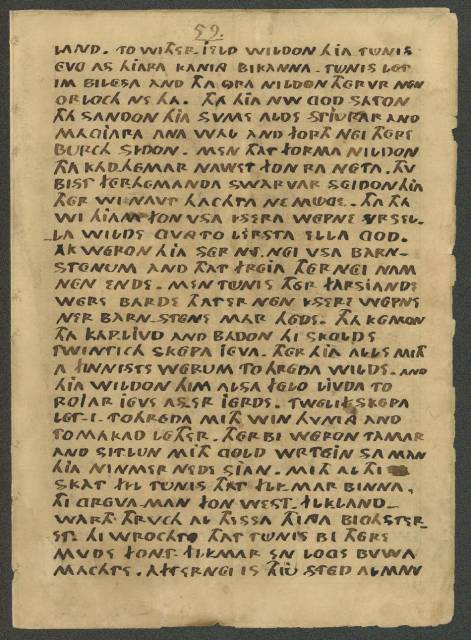 LAND. TO WITHER.IELD WILDON HIA TUNIS
EVG AS HIARA KANING BIKANNA. TUNIS LET
IM BILESA AND THA ORA NILDON THERVR NEN
ORLOCH NE HA. THA HIA NW GOD SATON
THA SANDON HIA SUME ALDE STIURAR AND
MAGIARA ANA WAL AND FORTH NEI THERE
BURCH SIDON. MEN THAT FORMA NILDON
THA KADHEMAR NAWET FON RA NETA. THV
BIST FERHEMANDA SWARVAR SEIDON HIA
THER WI NAVT HACHTA NE MUGE. THA THA
WI HIAM FON VSA YSERA WEPNE VRSEL-
LA WILDE GVNG TO LERSTA ELLA GOD.
AK WERON HIA SER NY.NEI VSA BARN-
STENUM AND THAT FREIA THER NEI NAM
NEN ENDE. MEN TUNIS THER FARSIANDE
WERE BARDE THAT ER NEN YSERE WEPNE
NER BARN-STENE MAR HEDE. THA KEMON
THA KAPLIVD AND BADON HI SKOLDE
TWINTICH SKEPA IEVA. THER HIA ALLE MITH
A FINNISTE WERUM TO HREDA WILDE. AND
HIA WILDON HIM ALSA FELO LIVDA TO
ROIAR IEVE AS.ER IERDE. TWELIF SKEPA
LET-I. TO HREDA MITH WIN HUNIG AND
TOMAKAD LETHER. THER BI WERON TAMAR
AND SITLUN MITH GOLD WRTEIN SA MAN
HIA NINMER NEDE SIAN. MITH AL THI
SKAT FIL TUNIS THAT FLIMAR BINNA.
THI GREVA-MAN FON WEST-FLILAND
WARTH THRVCH AL THESSA THINGA BIGHSTER-
ET. HI WROCHTE THAT TUNIS BI THERE
MUDE FONT-FLIMAR EN LOGE BUWA
MACHTE. AFTERNEI IS THIU STED ALMAN